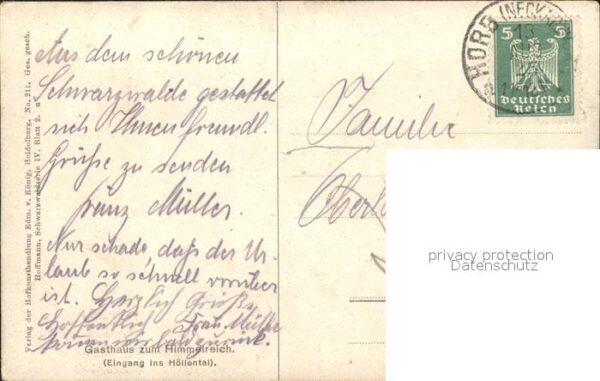 Aus dem schönen
Schwarzwalde gestattet
sich Ihnen freundl.
Grüße zu senden
Franz Müller.
Nur schade daß der Ur-
laub so schnell vorüber
ist. Herzlich Grüße
Hoffentlich Frau Müller
kommen wir bald zurück.
Gasthaus zum Himmelreich.
(Eingang ins Höllental).
Verlag der Hofkunsthandlung Edm. v. König, Heidelberg. No. 211. Ges. gesch.
Hoffmann, Schwarzwaldserie IV, Blatt 2.
HORB (NECKAR)
5 5
Deutsches
Reich
Familie
privacy protection
Datenschutz